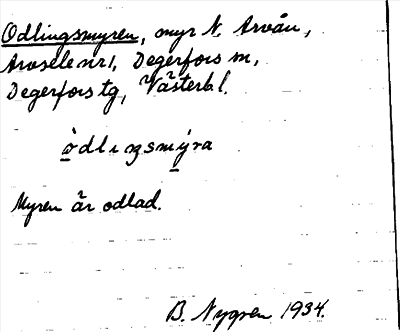 Odlingsmyren, myr N. Arvån,
Arvsele nr 1, Degerfors sn,
Degerfors tg, Västerb. l.
ò̲dlıŋsmý̲ra
Myren är odlad.
B. Nygren 1934.